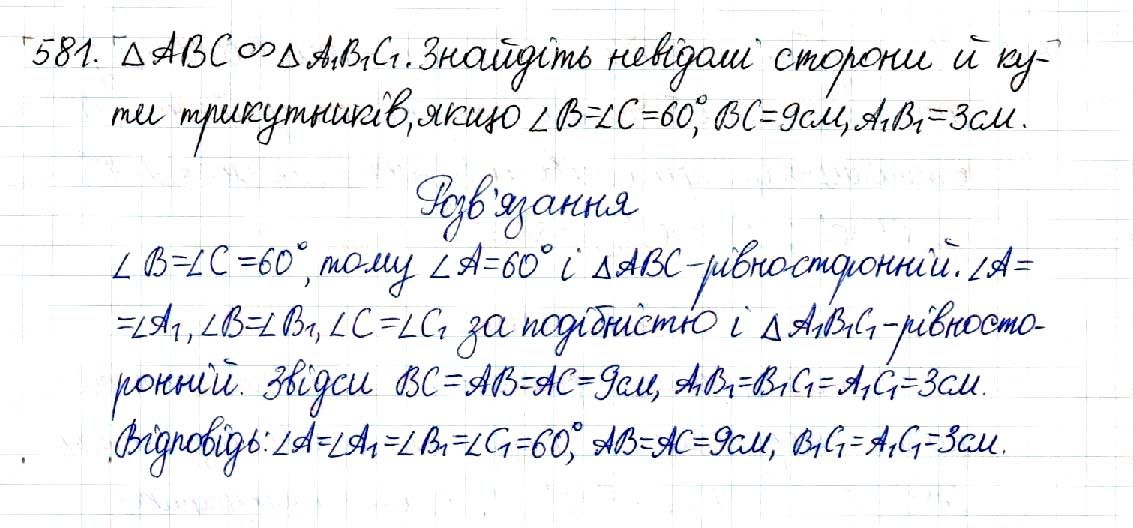 581. △ABC∞△A₁B₁C₁. Знайдіть невідомі сторони й ку-
ти трикутників, якщо ∠B=∠C=60°, BC=9см, A₁B₁=3см.
Розв'язання
∠B=∠C=60°, тому ∠A=60° і △ABC-рівносторонній. ∠A=
=∠A₁, ∠B=∠B₁, ∠C=∠C₁ за подібністю і △A₁B₁C₁-рівносто-
ронній. Звідси BC=AB=AC=9см, A₁B₁=B₁C₁=A₁C₁=3см.
Відповідь: ∠A=∠A₁=∠B₁=∠C₁=60°, AB=AC=9см, B₁C₁=A₁C₁=3см.